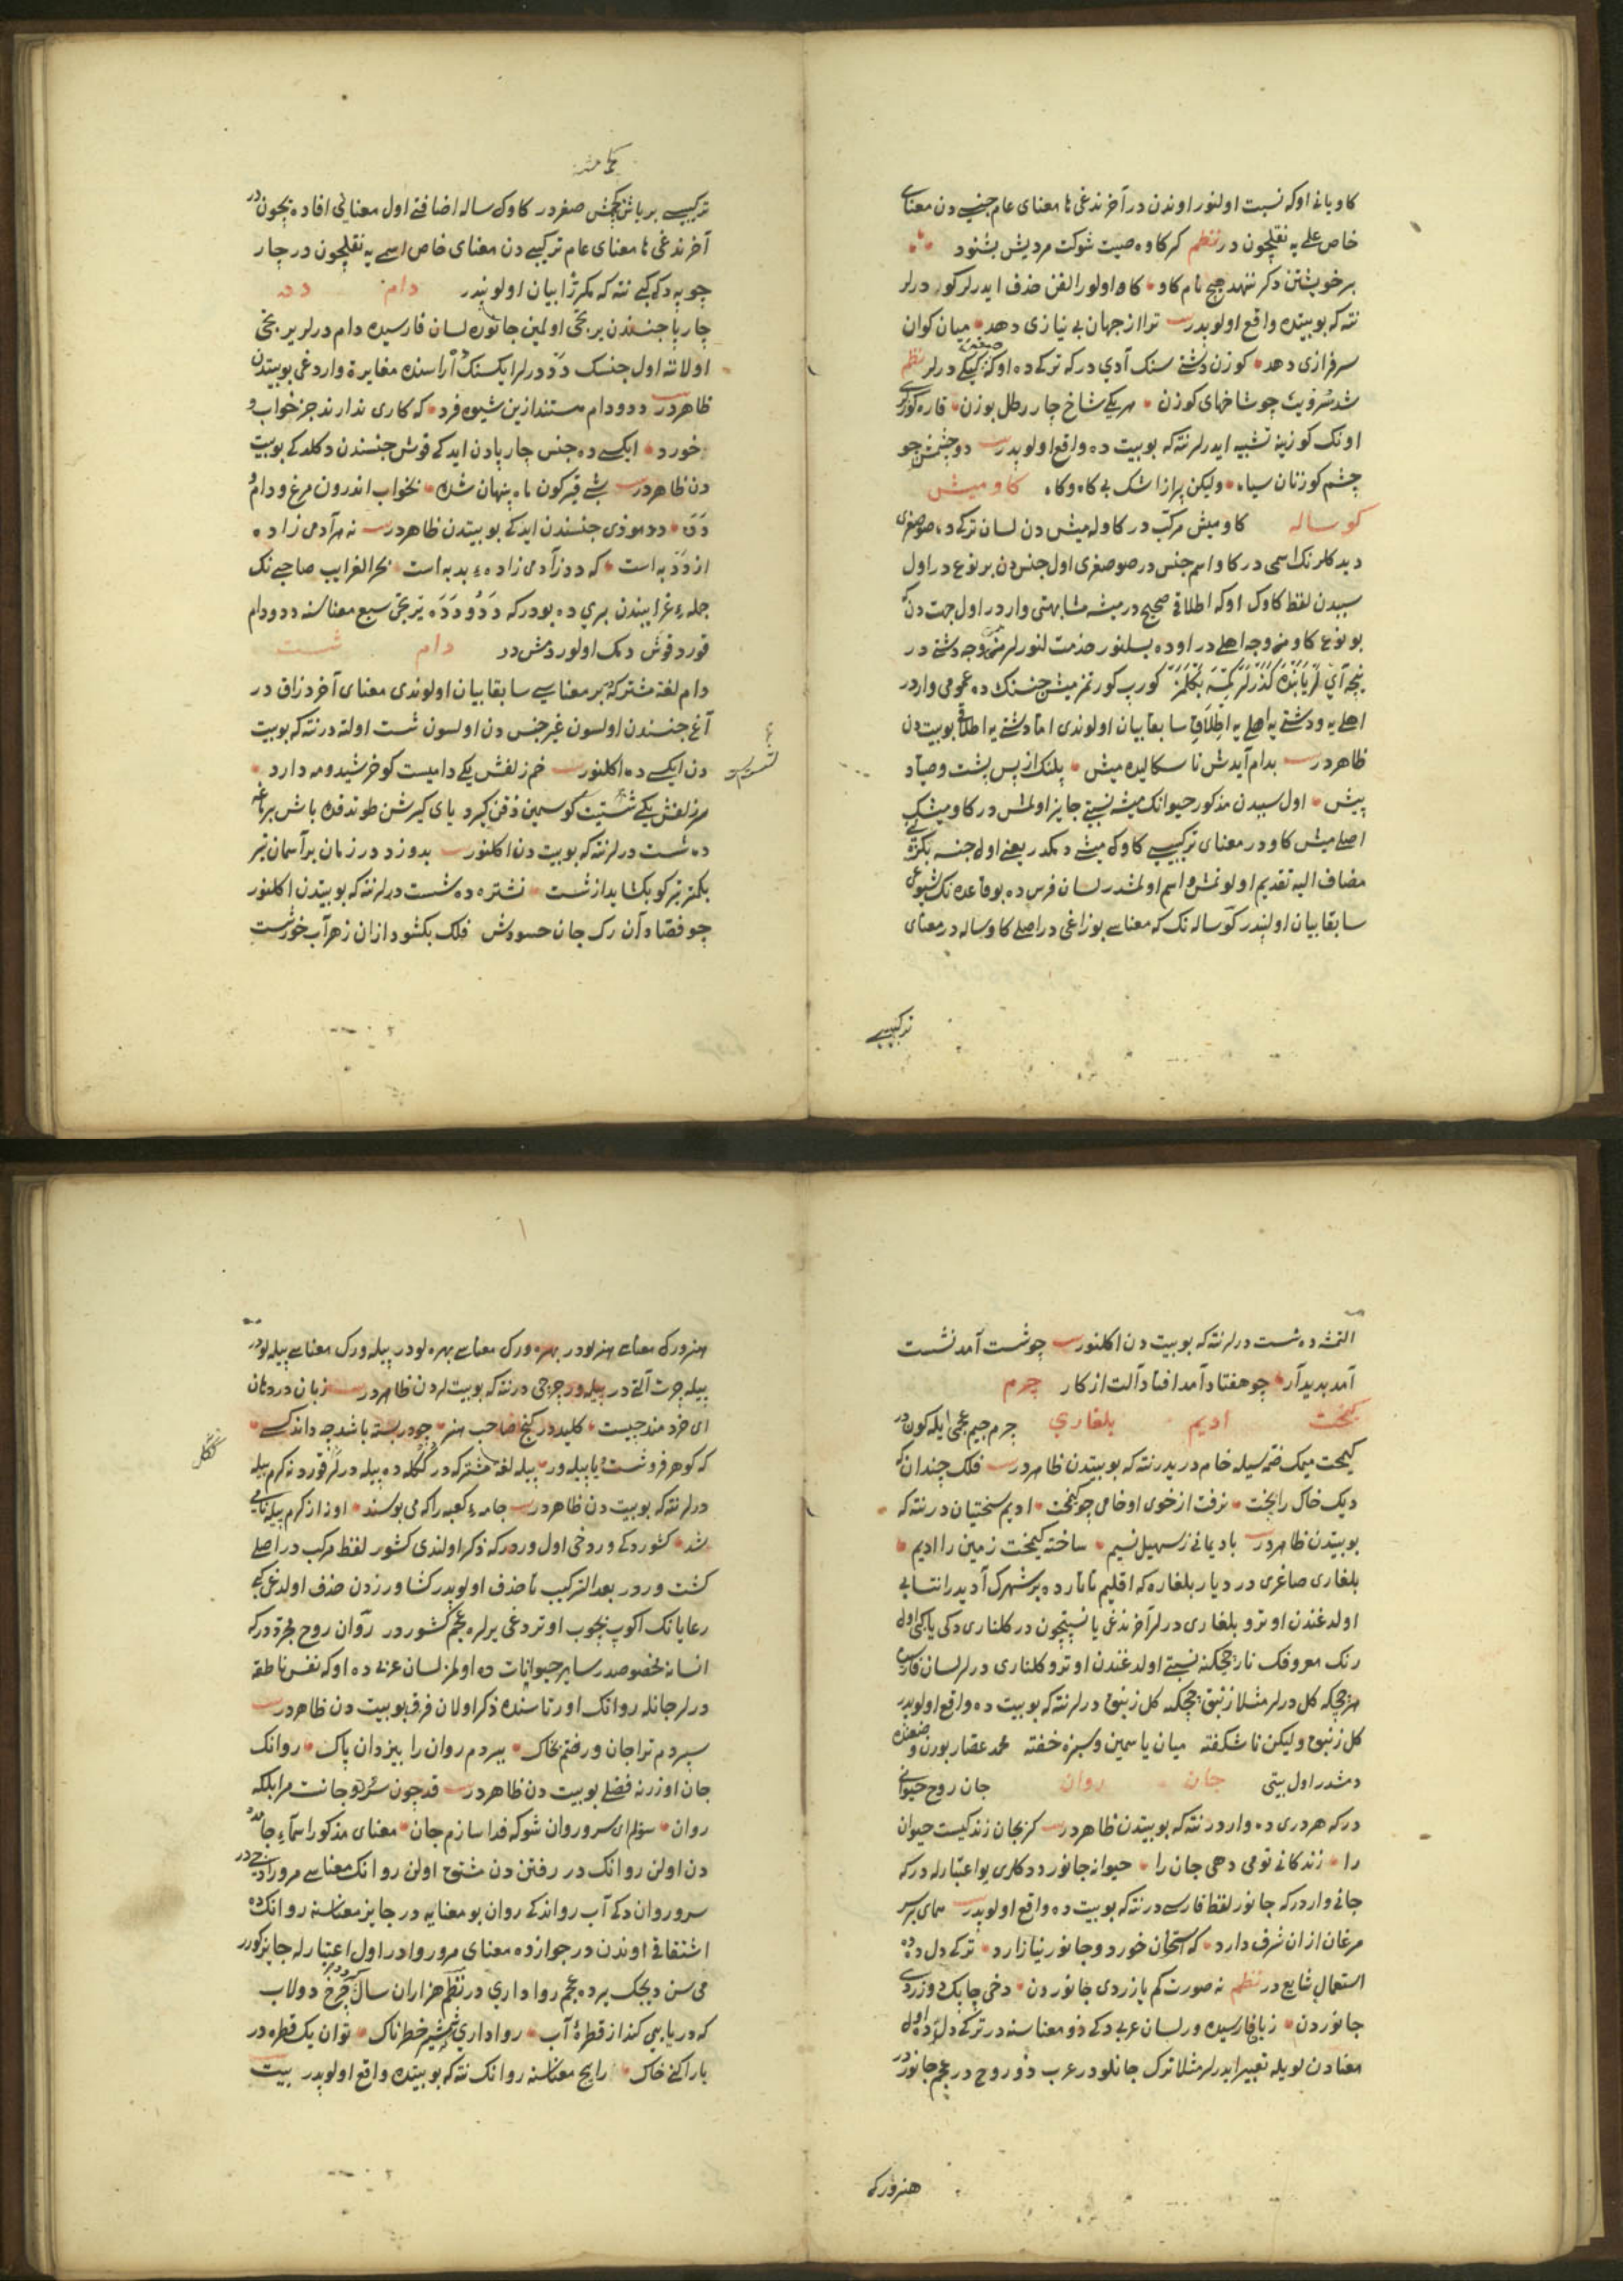 كاويانی اوكه نسبت اولنور اوندن در آخرندغی ها معنای عام جنسی دن معنای
خاص علمی يه نقليچون در نظم كر كاوه صيت شوكت مرديش بشنود
بر خويشتن دكر ننهد هيچ نام كاو كاو اولور الفن حذف ايدرلر كو درلر
نته كه بو بيتده واقع اولوبدر بيت ترا از جهان بی نيازی دهد ميان كوان
سرفرازی دهد كوزن دشتی سنك آدی در كه تركی ده اوكه كيك درلر نظم
چو شاخهای كوزن هر يكی شاخ چار رطل بوزن قاره كوزلری
اونك كوزينه تشبيه ايدرلر نته كه بو بيت ده واقع اولوبدر بيت دو چشمش چو
چشم كوزنان سياه وليكن پر از اشك بی كاه وكاه كاوميش
كوساله كاوميش مركب در كاوله ميش دن لسان تركی ده صوصغری
ديدكلرنك اسمی در كاو اسم جنس در صوصغری اول جنس دن بر نوع در اول
سببدن لفظ كاوك اوكه اطلاقی صحيح در ميشه مشابهتی واردر اول جهت دن كه
بو نوع كاو من وجه اهلی در اوده بسلنور خدمت لنور من وجه دشتی در
كورپ كورنمز ميش جنسنك ده عمومی واردر
اهلی يه ودشتی يه اهلی يه اطلاقی سابقا بيان اولوندی اما دشتی يه اطلاقی بو بيت دن
ظاهردر بيت بدام آيدش ناسكاليده ميش پلنك از پس پشت وصياد
پيش اول سببدن مذكور حيوانك ميشه نسبتی جايز اولمش در كاوميشك
اصلی ميش كاودر معنای تركيبی كاوك ميشی ديمكدر يعنی اول جنسه بكزر
مضاف اليه تقديم اولونمش اسم اولمشدر لسان فرس ده بو قاعده نك شيوعی
سابقا بيان اولنبدر كوساله نك كه معناسی بوزاغی در اصلی كاوساله در معنای
تركيبی
تركيبی بر ياش كچمش صغردر كاوك ساله اضافتی اول معنايی افاده يچون در
آخرندغی ها معنای عام تركيبی دن معنای خاص اسمی يه نقليچون در چار
چوبه دكی كبی نته كه مكررا بيان اولونبدر دام دد
چارپا جنسندن يرتجی اولمين جانوره لسان فارسيده دام درلر يرتجی
اولانه اول جنسك دد درلر ايكسنك آراسنده مغايرة واردغی بو بيتدن
ظاهردر بيت دد ودام هستند ازين شيوه فرد كه كاری ندارند جز خواب و
خورد ايكسی ده جنس چارپادن ايدكی قوش جنسندن دكلدكی بو بيت
دن ظاهردر بيت شبی قيركون ماه پنهان شده بخواب اندرون مرغ ودام و
دده دد موذی جنسندن ايدكی بو بيتدن ظاهردر بيت نه هر آدمی زاده
از دد به است كه دد ز آدمی زاده بد به است بحر الغرايب صاحبی نك
جمله غرايبندن بری ده بودر كه دد و دده يرتجی سبع معناسنه دد ودام
قورد قوش ديمك اولور ديمش در دام شست
دام لغة مشتركه در بر معناسی سابقا بيان اولوندی معنای آخر دزاق در
آغ جنسندن اولسون غير جنس دن اولسون شست اولته در نته كه بو بيت
دن ايكسی ده اكلنور بيت خم زلفش يكی داميست كو خرشيد ومه دارد
سر زلفش يكی شستيت كو سيمين ذقن كيرد يای كيرشن طوتدقده باش برماغه
ده شست درلر نته كه بو بيت دن اكلنور بيت بدوزد در زمان بر آسمان تير
يكمتر تير كو بكشايد از شست نشتره ده شست درلر نته كه بو بيتدن اكلنور
چو فصاد آن رك جان حسودش فلك بكشود ازان زهر آب خورشست
التمشه ده شست درلر نته كه بو بيت دن اكلنور بيت چو شست آمد نشست
آمد پديدار چو هفتاد آمد افتاد آلت از كار چرم
كيمخت اديم بلغاری چرم جيم عجمی ايله كون در
كيمخت ميمك ضمه سيله خام دريدر نته كه بو بيتدن ظاهردر بيت فلك چندان كه
ديك خاك را پخت نرفت از خوی او خامی چو كيمخت اديم سختيان در نته كه
بو بيتدن ظاهردر بيت باد يمانی ز سهيل نسيم ساخته كيمخت زمين را اديم
بلغاری صاغری در ديار بلغاره كه اقليم تاتارده بر شهرك آديدر انتسابی
اولدغندن اوترو بلغاری درلر آخرندغی يا نسبتچون در كلناری دكی يا كبی اول
رنك معروفك نار چيچكنه نسبتی اولدغندن اوترو كلناری درلر لسان فارسيده
هر چيچكه كل درلر مثلا زنبق چيچكنه كل زنبق درلر نته كه بو بيت ده واقع اولوبدر
كل زنبق وليكن ناشكفته ميان ياسمين وسبزه خفته محمد عصار بورن وصفنده
ديمشدر اول بيتی جان روان جان روح حيوانی
در كه هر دری ده واردر نته كه بو بيتدن ظاهردر بيت كر بجان زندكيست حيوان
را زندكانی تومی دهی جان را حيوانه جانور ددكلری بو اعتبارله در كه
جانی واردر كه جانور لفظ فارسی در نته كه بو بيت ده واقع اولوبدر بيت همای بر سر
مرغان ازان شرف دارد كه استخوان خورد وجانور نيازارد تركی دل ده ده
استعمالی شايع در نظم نه صورت كم يازردی جانوردن دخی چابك دوزردی
جانوردن زبان فارسيده ور لسان عربی دكی ذو معناسنه در تركی دلده اول
معنادن لو يله تعبير ايدرلر مثلا ترك جانلو در عرب ذو روح در عجم جانور در
هنرورك
هنرورك معناسی هنرلودر بهره ورك معناسی بهره لودر پيله ورك معناسی پيله لودر
پيله چرت آلتی در پيله ور چرچی در نته كه بو بيتلردن ظاهردر بيت زبان در دهان
ای خردمند چيست كليد در كنج صاحب هنر چو در بسته باشد چه داند كسی
كه كوهر فروشست يا پيله ور پيله لغة مشتركه در ككله ده پيله درلر قوردنه كرم پيله
درلر نته كه بو بيت دن ظاهردر بيت جامه كعبه را كه می بوسند او نز از كرم پيله نامی
شد كشوردكی ور دخی اول وردر كه ذكر اولندی كشور لفظ مركب در اصلی
كشت وردر بعد التركيب تا حذف اولوبدر كشاورزدن حذف اولدغی كبی
رعايانك اكوپ بچوب اوتردغی يرلره عجم كشور در روان روح مجرد در كه
انسانه مخصوصدر ساير حيوانات ده اولمز لسان عربی ده اوكه نفس ناطقه
درلر جانله روانك اورتاسنده ذكر اولان فرق بو بيت دن ظاهردر بيت
سپردم ترا جان ورفتم بخاك سپردم روان را بيزدان پاك روانك
جان اوزرنه فضلی بو بيت دن ظاهردر بيت قد چون سرو جانت مرا بلكه
روان سويم ای سرو روان شو كه فدا سازم جان معنای مذكور اسماء جامده
دن اولن روانك در رفتن دن مشتق اولن روانك معناسی مروردادر
سرو روان دكی آب رواندكی روان بو معنايه در جايز معناسنه روانك ده
اشتقاقی اوندن در جوازده معنای مرور وادر اول اعتبارله جايز كورر
می سن ديجك يرده عجم رواداری در نظم هزاران سال كردد چرخ دولاب
كه دريايی كند از قطره آب رواداری خطرناك توان يك قطره در
بار افكنی خاك رايج معناسنه روانك نته كه بو بيتده واقع اولوبدر بيت